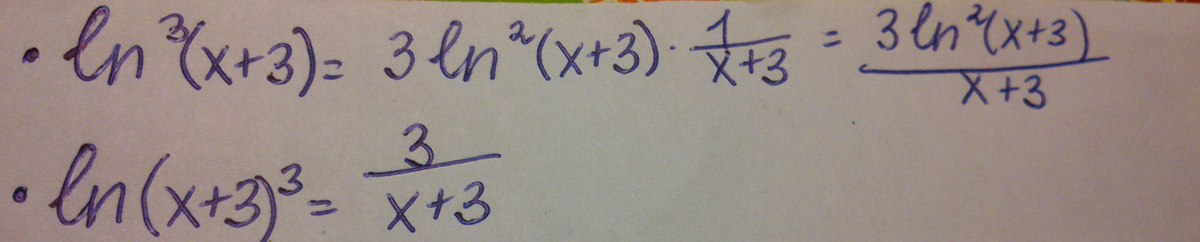 • ln³(x+3) = 3 ln²(x+3) · 1/(x+3) = 3 ln²(x+3)/(x+3)
• ln(x+3)³ = 3/(x+3)